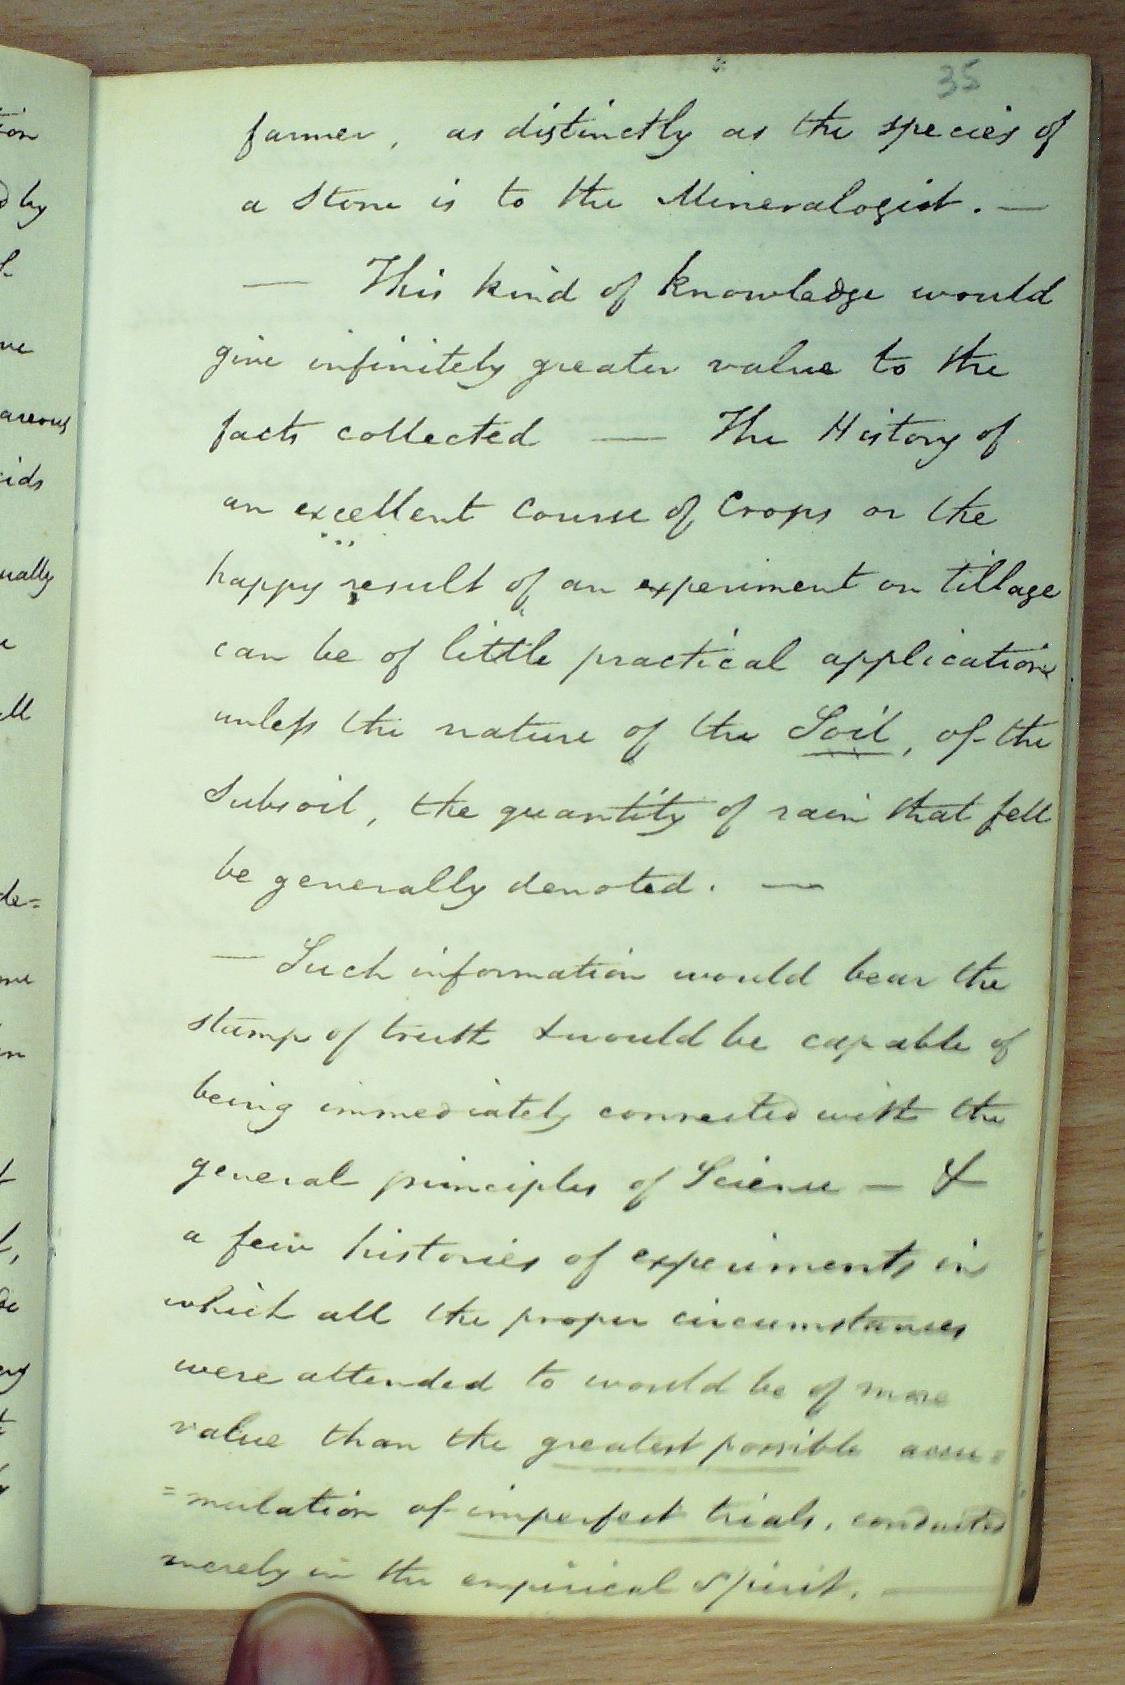 35
farmer, as distinctly as the species of
a stone is to the Mineralogist. —
— This kind of knowledge would
give infinitely greater value to the
facts collected — The History of
an excellent course of Crops or the
happy result of an experiment on tillage
can be of little practical application
unleſs the nature of the Soil, of the
subsoil, the quantity of rain that fell
be generally denoted. —
— Such information would bear the
stamp of truth & would be capable of
being immediately connected with the
general principles of Science — &
a few histories of experiments in
which all the proper circumstances
were attended to would be of more
value than the greatest possible accu=
=mulation of imperfect trials, conducted
merely in the empirical spirit. —
ion
by
ve
areous
cids
ually
ell
de=
me
in